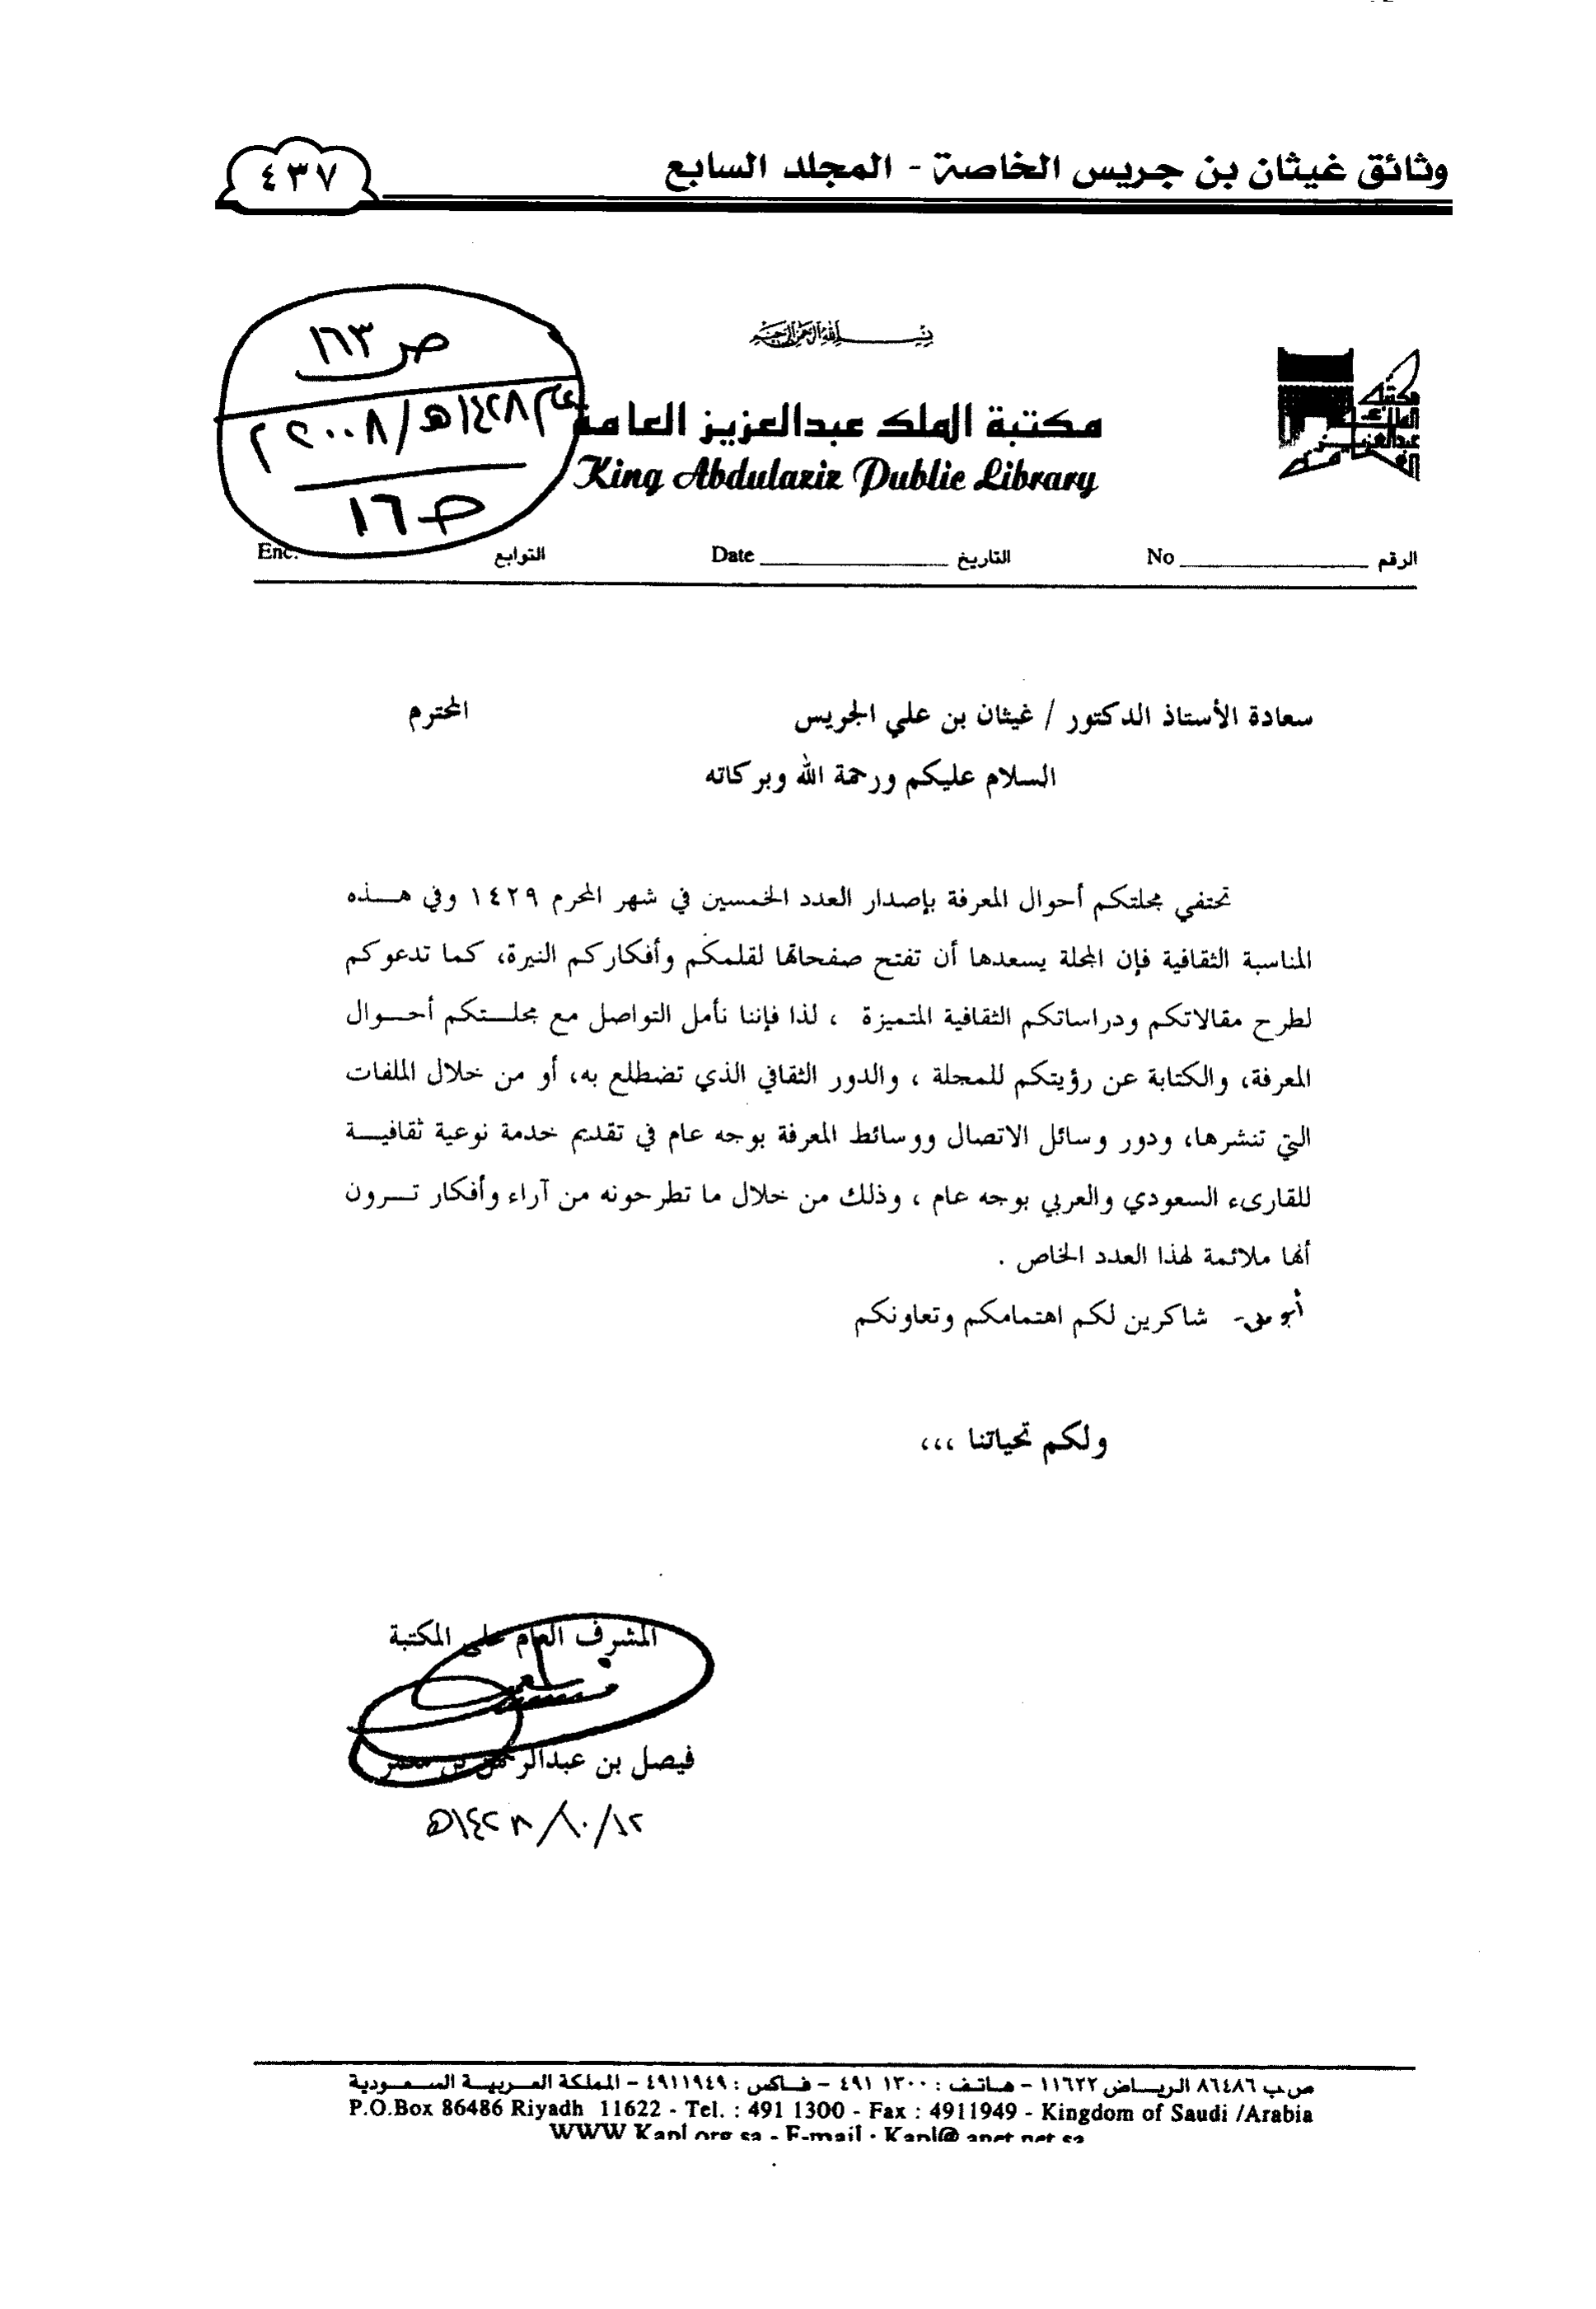 وثائق غيثان بن جريس الخاصة - المجلد السابع
٤٣٧
بسم الله الرحمن الرحيم
ص ١٦٣
عام ١٤٢٨هـ/٢٠٠٨م
ص ١٦
مكتبة الملك عبدالعزيز العامة
King Abdulaziz Public Library
مكتبة الملك عبدالعزيز العامة
الرقم No التاريخ Date التوابع Enc.
سعادة الأستاذ الدكتور / غيثان بن علي الجريس المحترم
السلام عليكم ورحمة الله وبركاته
تحتفي مجلتكم أحوال المعرفة بإصدار العدد الخمسين في شهر المحرم ١٤٢٩ وفي هـــذه
المناسبة الثقافية فإن المجلة يسعدها أن تفتح صفحاتها لقلمكم وأفكاركم النيرة، كما تدعوكم
لطرح مقالاتكم ودراساتكم الثقافية المتميزة ، لذا فإننا نأمل التواصل مع مجلـــتكم أحـــوال
المعرفة، والكتابة عن رؤيتكم للمجلة ، والدور الثقافي الذي تضطلع به، أو من خلال الملفات
التي تنشرها، ودور وسائل الاتصال ووسائط المعرفة بوجه عام في تقديم خدمة نوعية ثقافيـــة
للقارىء السعودي والعربي بوجه عام ، وذلك من خلال ما تطرحونه من آراء وأفكار تـــرون
أنها ملائمة لهذا العدد الخاص .
شاكرين لكم اهتمامكم وتعاونكم
ولكم تحياتنا ،،،
المشرف العام على المكتبة
فيصل بن عبدالرحمن بن معمر
١٢/١٠/١٤٢٨هـ
ص.ب ٨٦٤٨٦ الريـــاض ١١٦٢٢ - هـاتـف : ١٣٠٠ ٤٩١ - فـاكس : ٤٩١١٩٤٩ - المملكة العـــربيـــة السـعـــودية
P.O.Box 86486 Riyadh 11622 - Tel. : 491 1300 - Fax : 4911949 - Kingdom of Saudi /Arabia
WWW Kapl org sa - E-mail : Kapl@ anet net sa